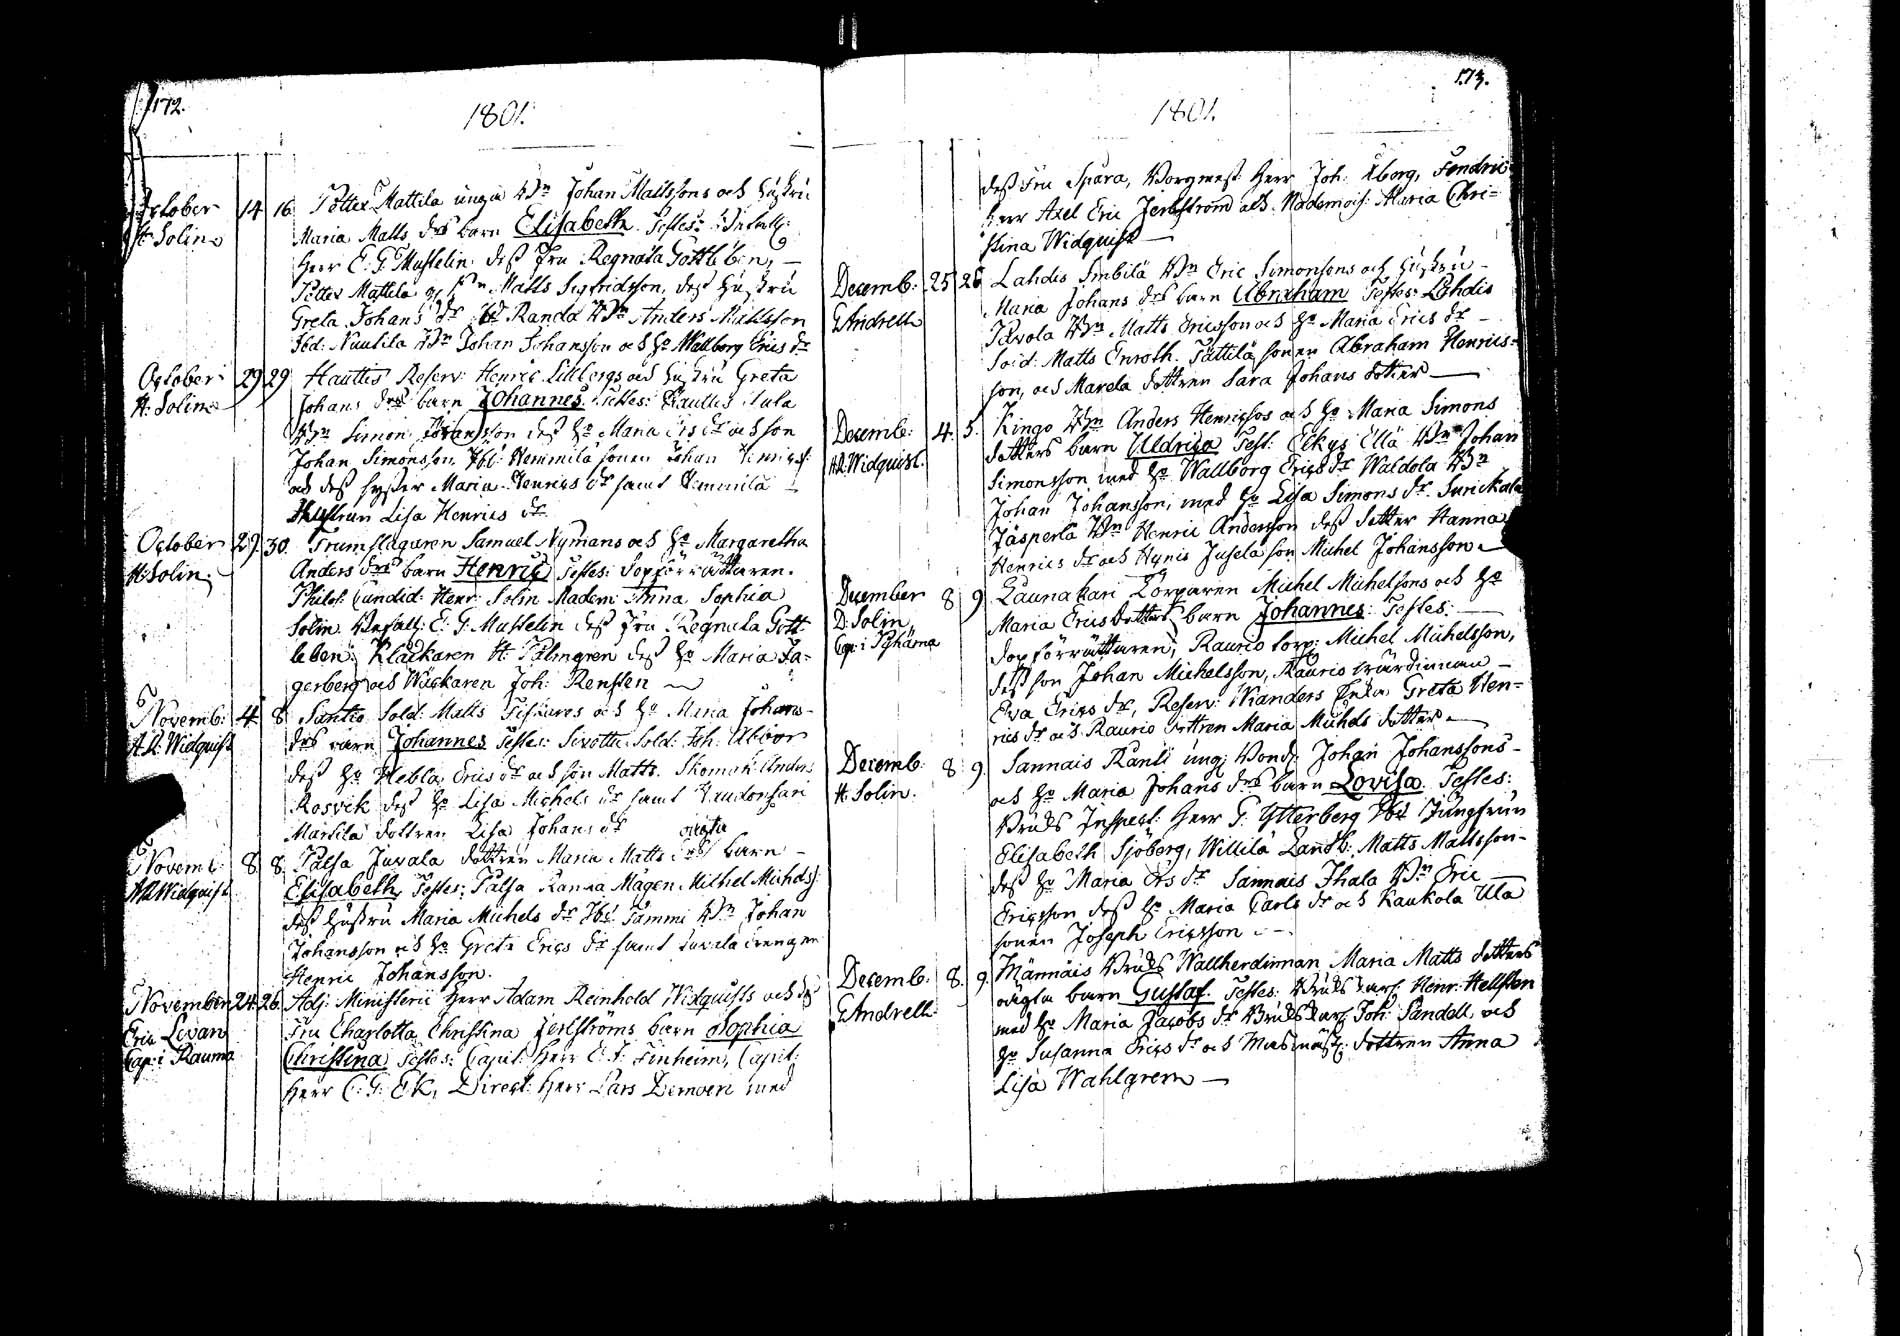 172.
1801.
October 14 16. Potter Mattila unga Bdn Johan Mattssons och hustru
H: Solin Maria Matts drs barn Elisabeth. Testes: Befallg:
Herr E. G. Musselin dess Fru Regnata Gottleben, —
Potter Mattila Matts Sigfridsson, dess hustru
Greta Johans dr Randa Bdn Anders Mattsson
Ibd: Nuutila Bdn Johan Johansson och ho Wallborg Erics dr
October 29 29 Hauttis Reserv: Henric Lillbergs och hustru Greta
H: Solin Johans drs barn Johannes. Testes: Rauttis Tula
Bdn Simon Johansson dess ho Maria Ers dr och son
Johan Simonsson, Ibd: Hemmilä sonen Johan Henrics:
och dess syster Maria Henrics dr samt Hemmilä
Hustrun Lisa Henrics dr
October 29 30. Trumslagaren Samuel Nymans och ho Margaretha
H: Solin Anders drs barn Henric Testes: Dopförrättaren.
Philos: Candid: Henr: Solin Madem: Anna Sophia
Solin Befall: E: G: Musselin dess Fru Regnata Gott
leben, Klåckaren H: Palmgren dess ho Maria Fa-
gerberg och Wackaren Joh: Rensten
Novemb: 4 8 Santio Sold: Matts Tiskares och ho Maria Johans
A. R. Widquist drs barn Johannes Testes: Sivotta Sold: Joh: Abbor
dess ho Hebla Erics dr och son Matts. Skomak: Anders
Rosvik dess ho Lisa Michels dr samt
Marttila dottren Lisa Johans dr
oägta
Novemb: 8 8 Palsa Juvala dottren Maria Matts drs barn
A R Widquist Elisabeth Testes: Palsa Ranna Mågen Michel Michelss:
dess hustru Maria Michels dr Ibd: Tammi Bdn Johan
Johansson och ho Greta Erics dr samt Juvala drengen
Henric Johansson.
November 24 26. Adj: Ministerii Herr Adam Reinhold Widquists och dess
Eric Levan Fru Charlotta Christina Jerlströms barn Sophia
Cap: i Rauma Christina Testes: Capit: Herr C. F. Finheim, Capit:
Herr C: G: Ek, Direct: Herr Lars Demoen med
173.
1801.
dess Fru Spära, Borgmest: Herr Joh: Åborg, Fendric
Herr Axel Eric Jerlström och Mademois: Maria Chri-
stina Widquist
Decemb: 25 26 Lahdis Smbilä Bdn Eric Simonsons och hustru
G Andrell Maria Johans drs barn Abraham Testes: Lahdis
Pavola Bdn Matts Ericsson och ho Maria Erics dr
Sold: Matts Enroth. Pättilä sonen Abraham Henrics-
son, och Marela dottren Sara Johans dotter
Decemb: 4. 5. Kingo Bdn Anders Henricssos och ho Maria Simons
A.R. Widquist. dotters barn Uldrica Test: Eckys Ellä Bdn Johan
Simonsson med ho Wallborg Erics dr Waldola Bdn
Johan Johansson, med ho Lisa Simons dr. Surickala
Jäsperlä Bdn Henric Andersson dess dotter Hanna
Henrics dr och Hynis Jusela son Michel Johansson
December 8 9. Launakari Torparen Michel Michelsons och ho
D: Solin Maria Erics dotters barn Johannes: Testes:
Cap: i Pyhäma dopförrättaren, Raurio torp: Michel Michelsson,
dess son Johan Michelsson, Raurio wärdinnan
Ewa Erics dr, Reserv: Wianders Enka Greta Hen-
rics dr och Raurio dottren Maria Michels dotter
Decemb: 8 9. Sannais Ranti ung: Bond: Johan Johanssons
H: Solin. och ho Maria Johans drs barn Lovisa Testes:
Bruks Inspect: Herr G: Ytterberg Ibd Jungfrun
Elisabeth Sjöberg, Willilä Landb: Matts Mattsson
dess ho Maria Ers dr Sannais Ihala Bdn Eric
Ericsson dess ho Maria Carls dr och Kaukola Ula
sonen Joseph Ericsson
Decemb: 8. 9. Männäis Bruks Wallherdinnan Maria Matts dotters
G Andrell oägta barn Gustaf. Testes: Bruks karl Henr: Hellsten
med ho Maria Jacobs dr Bruks karl Joh: Sandell, och
ho Susanna Erics dr och dottren Anna
Lisa Wahlgren